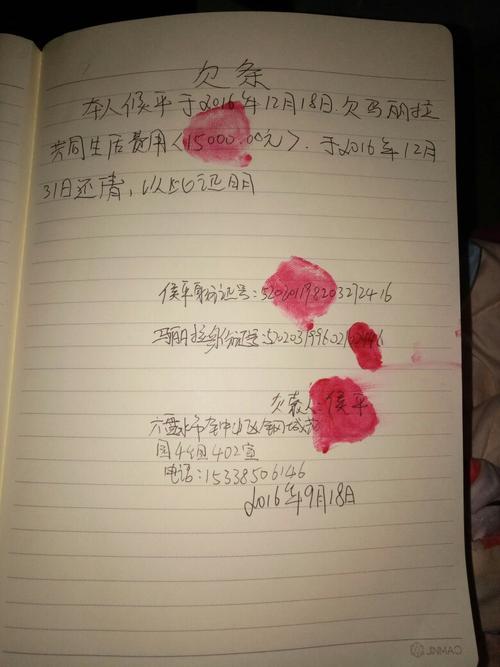 欠条
本人候平于2016年12月18日.欠马丽拉
共同生活费用〈15000.00元〉.于2016年12月
31日还清，以此证明
侯平身份证号:
马丽拉身份证号:
欠款人:侯平
六盘水市
园4组402室
电话:15338506146
2016年9月18日